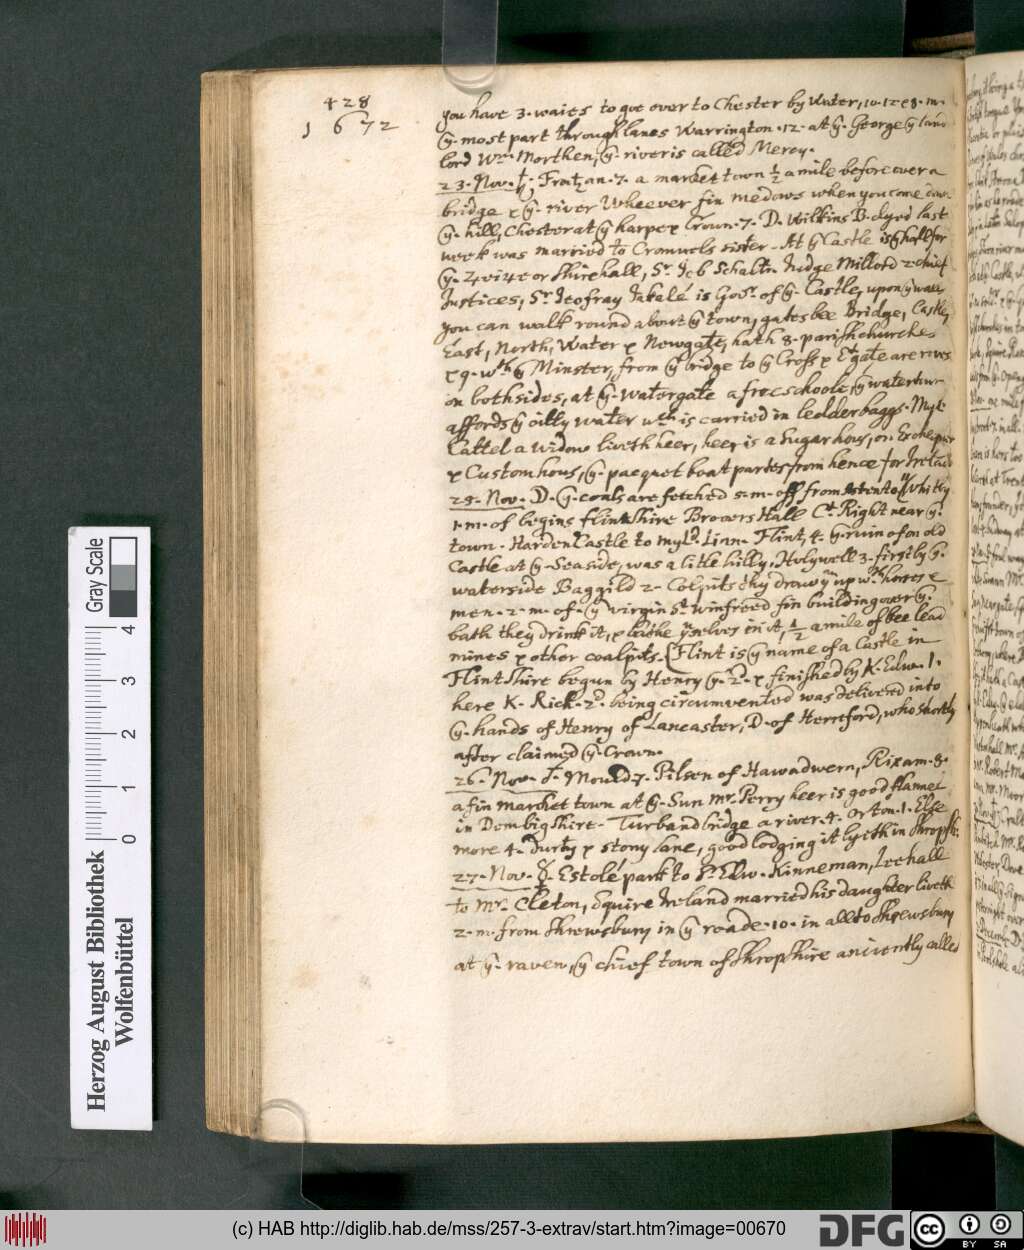 428
1672
you have 3. waies to goe over to Chester by Water, 10. 12 e 8. m.
ẙ. most part through lanes Warrington. 12. at ẙ. George ẙ land
lord Wm. Morthen, ẙ. river is called Mercy.
23. Nov. ♄. Fratzan. 7. a market town ½ a mile before over a
bridge & ẙ. river Wheever fin medows when you come
ẙ. hill, Chester at ẙ harpe & Crown. 7. D. Wilkins B. dyed last
week was married to Cromuels sister. At ẙ Castle is ẙ hall for
ẙ. or Shirehall, Sr. Job Schaltn. Judge Millord & chief
Justices, Sr Jeofray Jakalé is Gosr. of ẙ. Castle, upon ẙ wall
you can walk round about ẙ town, gates bee Bridge, Castle,
East, North, Water & Nowgate, hath 8. parish churches
& 9. wth ẙ Minster, from ẙ bridge to ẙ Cross & Etgate are rows
on both sides, at ẙ. Watergate a free schoole, ẙ watertour
affords ẙ oilly water wch is carried in ledderbaggs. Myle
Cattel a widow liveth heer, heer is a Sugar hous, or. Exchequer
& Customhous, ẙ. pacquet boat partes from hence for Ireland
25. Nov. D. ẙ. coals are fetched 5. m. off from Whitby
1. m. of begins flintshire Browers Hall Ct. Right near ẙ.
town. Harden Castle to my Ld. Linn. Flint, 4. ẙ. ruin of an old
Castle at ẙ. Seaside, was a litle hilly. Holywell 3. firstly ẙ.
waterside Baggild 2. Colpits they draw ẙm up wth horses &
men. 2. m. of. ẙ virgin St. Winfreed fin building over ẙ.
bath they drink it, & bathe ẙmselves in it, ½ a mile of bee lead
mines & other coalpits. [Flint is ẙ name of a Castle in
Flintshire begun by Henry ẙ. 2d. & finished by K. Edw. 1.
here K. Rick. 2d. being circumvented was delivered into
ẙ. hands of Henry of Lancaster, D. of Herttford, who shortly
after claimed ẙ. Crown.
26. Nov. ♂. Mould 7. Pilsen of Hawadwern, Rixam. 8.
a fin marcket town at ẙ. Sun Mr. Perry heer is good flannel
in Dembigshire. Turband bridge a river. 4. Orton. 1. Else
more 4. durty & stony lane, good lodging it lyeth in Shropsh:
27. Nov. ☿. Estolé park to Sr. Edw. Kinneman, Leehall
to Mr. Cleton, Squire Ireland married his daughter liveth
2. m. from Shrewsbury in ẙ roade. 10. in all to Shrewsbury
at ẙ. raven, ẙ chief town of Shropshire anciently called
Herzog August Bibliothek
Wolfenbüttel
Gray Scale
0 1 2 3 4
(c) HAB http://diglib.hab.de/mss/257-3-extrav/start.htm?image=00670
DFG
cc BY SA